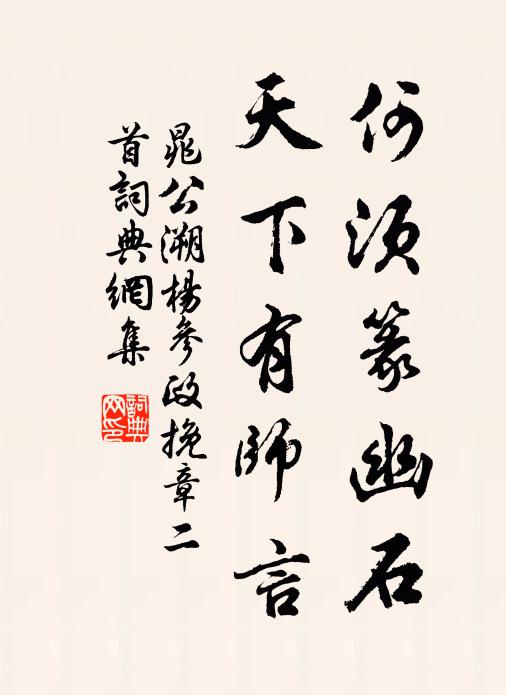 何須篆幽石
天下有師言
晁公溯楊參政挽章二
首詞典網集
詞典
网印